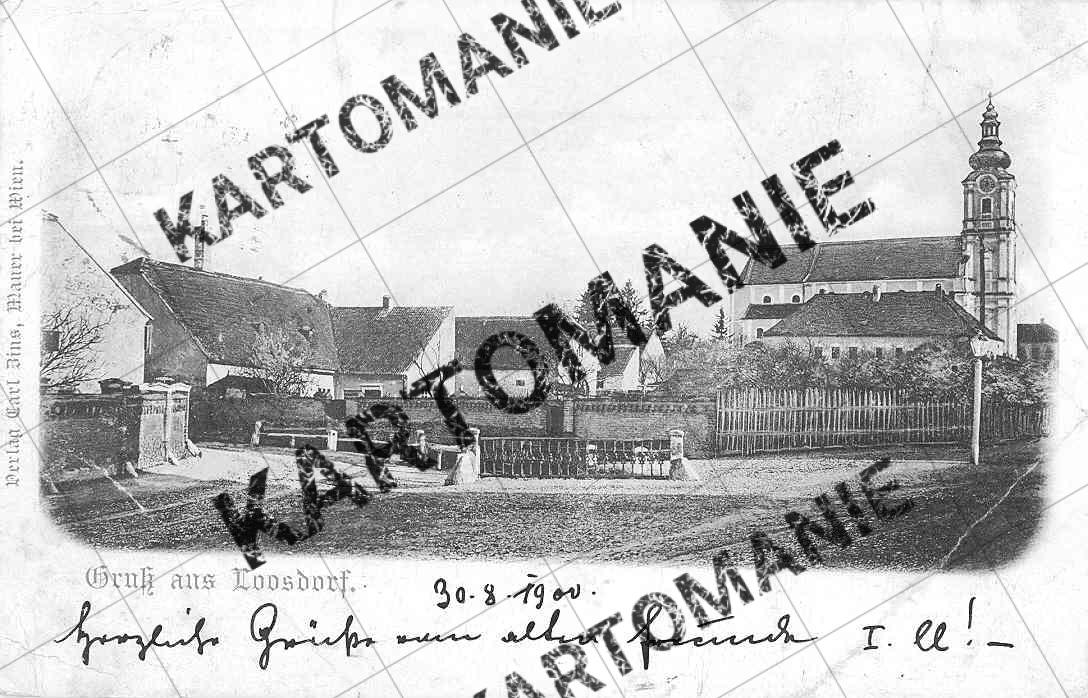 KARTOMANIE
KARTOMANIE
KARTOMANIE
Verlag Carl Bins, Mauer bei Wien.
Gruß aus Loosdorf.
30.8.1900.
Herzliche Grüße vom alten Freunde